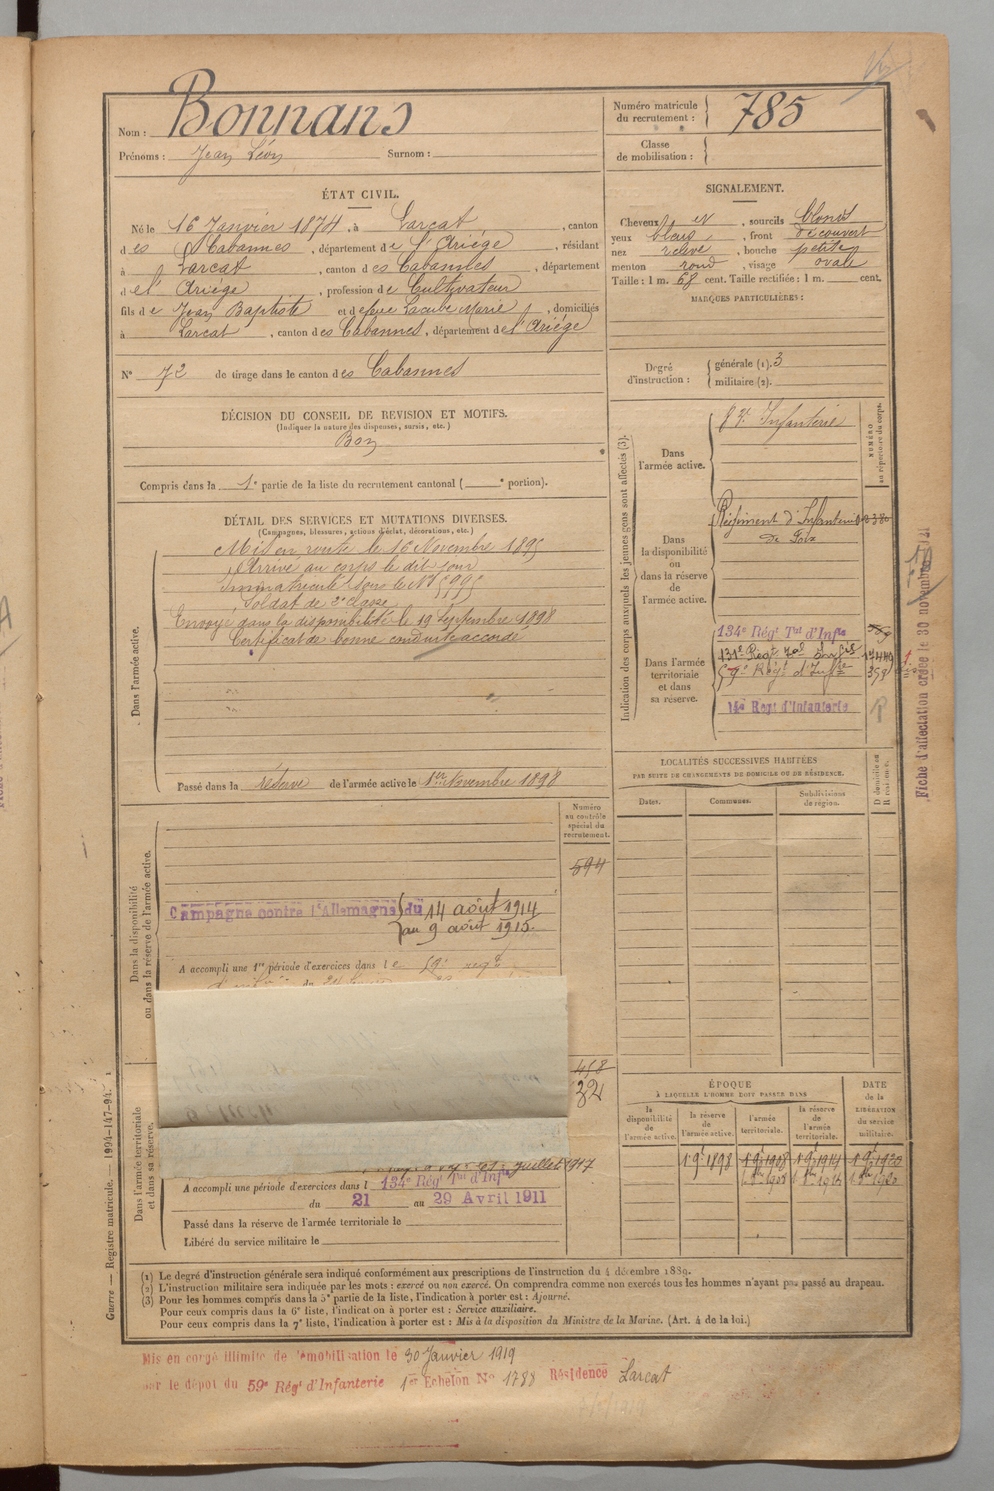 Nom : Bonnans
Prénoms : Jean Léon Surnom :
Numéro matricule du recrutement : 785
Classe de mobilisation :
ÉTAT CIVIL.
Né le 16 Janvier 1874, à Larcat, canton
des Cabannes, département de l'Ariége, résidant
à Larcat, canton des Cabannes, département
de l' Ariége, profession de Cultivateur
fils de Jean Baptiste et de feue Lacube Marie, domiciliés
à Larcat, canton des Cabannes, département de l'Ariége
N° 72 de tirage dans le canton des Cabannes
SIGNALEMENT.
Cheveux et, sourcils blonds
yeux bleus, front découvert
nez relevé, bouche petite
menton rond, visage ovale
Taille : 1 m. 68 cent. Taille rectifiée : 1 m. cent.
MARQUES PARTICULIÈRES :
Degré d'instruction : générale (1). 3
militaire (2).
DÉCISION DU CONSEIL DE REVISION ET MOTIFS.
(Indiquer la nature des dispenses, sursis, etc.)
Bon
Compris dans la 1e partie de la liste du recrutement cantonal ( e portion).
DÉTAIL DES SERVICES ET MUTATIONS DIVERSES.
(Campagnes, blessures, actions d'éclat, décorations, etc.)
Dans l'armée active.
Mis en route le 16 Novembre 1895
Arrivé au corps le dit jour
Immatriculé sous le N° 5995
Soldat de 2e classe
Envoyé dans la disponibilité le 19 Septembre 1898
Certificat de bonne conduite accordé
Passé dans la réserve de l'armée active le 1er Novembre 1898
Indication des corps auxquels les jeunes gens sont affectés (3).
NUMÉRO au répertoire du corps.
Dans l'armée active.
83e Infanterie
Dans la disponibilité ou dans la réserve de l'armée active.
Régiment d'Infanterie
de Foix
Dans l'armée territoriale et dans sa réserve.
134e Régt Tal d'Infie
131e Regt Tal Infie
59e Regt d'Infie 358
14e Regt d'Infanterie
Fiche d'affectation créée le 30 novembre
LOCALITÉS SUCCESSIVES HABITÉES
PAR SUITE DE CHANGEMENTS DE DOMICILE OU DE RÉSIDENCE.
Dates. Communes. Subdivisions de région. D domicile ou R résidence.
Numéro au contrôle spécial du recrutement.
594
Dans la disponibilité ou dans la réserve de l'armée active.
Campagne contre l'Allemagne du 14 août 1914
au 9 août 1915.
A accompli une 1re période d'exercices dans le 59e regt
458
32
Dans l'armée territoriale et dans sa réserve.
juillet 1917
A accompli une période d'exercices dans l 134e Régt Tal d'Infie
du 21 au 29 Avril 1911
Passé dans la réserve de l'armée territoriale le
Libéré du service militaire le
ÉPOQUE
À LAQUELLE L'HOMME DOIT PASSER DANS
la disponibilité de l'armée active. la réserve de l'armée active. l'armée territoriale. la réserve de l'armée territoriale.
DATE de la LIBÉRATION du service militaire.
1 9e 1898 1 9e 1908 1 9e 1914 1 9e 1920
(1) Le degré d'instruction générale sera indiqué conformément aux prescriptions de l'instruction du 4 décembre 1889.
(2) L'instruction militaire sera indiquée par les mots : exercé ou non exercé. On comprendra comme non exercés tous les hommes n'ayant pas passé au drapeau.
(3) Pour les hommes compris dans la 5e partie de la liste, l'indication à porter est : Ajourné.
Pour ceux compris dans la 6e liste, l'indication à porter est : Service auxiliaire.
Pour ceux compris dans la 7e liste, l'indication à porter est : Mis à la disposition du Ministre de la Marine. (Art. 4 de la loi.)
Guerre — Registre matricule. — 1994-147-94.
Mis en congé illimité de démobilisation le 30 Janvier 1919
par le dépôt du 59e Régt d'Infanterie 1er Echelon N° 1788 Résidence Larcat